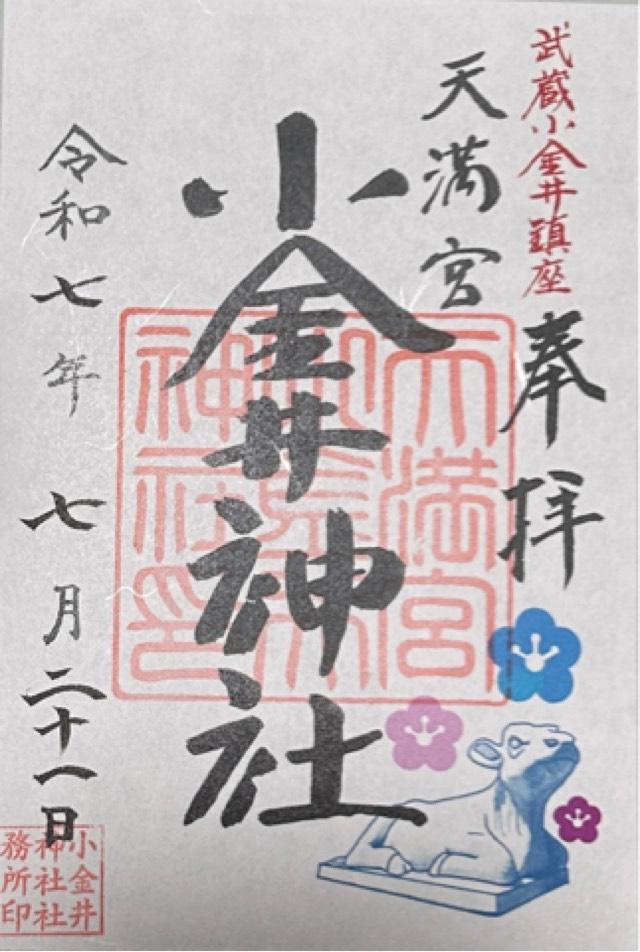 武蔵小金井鎮座
奉拝
天満宮
小金井神社
令和七年七月二十一日
天満宮
小金井
神社印
小金井
神社社
務所印